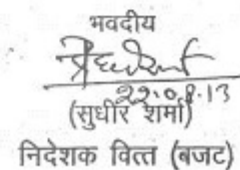 भवदीय
22.08.13
(सुधीर शर्मा)
निदेशक वित्त (बजट)